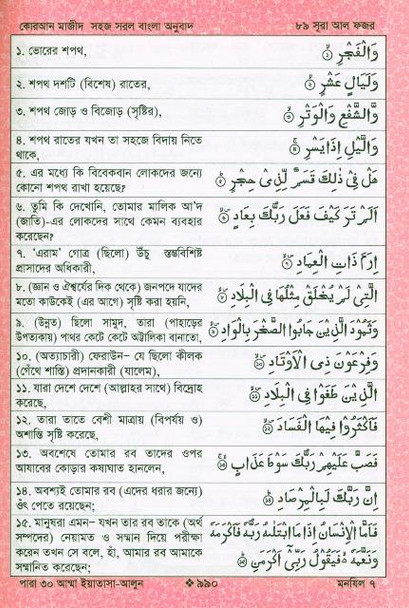 কোরআন মাজীদ সহজ সরল বাংলা অনুবাদ
৮৯ সূরা আল ফজর
১. ভোরের শপথ,
وَالْفَجْرِ ۙ﴿١﴾
২. শপথ দশটি (বিশেষ) রাতের,
وَلَيَالٍ عَشْرٍ ۙ﴿٢﴾
৩. শপথ জোড় ও বিজোড় (সৃষ্টির),
وَّالشَّفْعِ وَالْوَتْرِ ۙ﴿٣﴾
৪. শপথ রাতের যখন তা সহজে বিদায় নিতে
থাকে,
وَالَّيْلِ اِذَا يَسْرِ ۚ﴿٤﴾
৫. এর মধ্যে কি বিবেকবান লোকদের জন্যে
কোনো শপথ রাখা হয়েছে?
هَلْ فِيْ ذٰلِكَ قَسَمٌ لِّذِيْ حِجْرٍ ؕ﴿٥﴾
৬. তুমি কি দেখোনি, তোমার মালিক আ'দ
(জাতি)-এর লোকদের সাথে কেমন ব্যবহার
করেছেন?
اَلَمْ تَرَ كَيْفَ فَعَلَ رَبُّكَ بِعَادٍ ۪ۙ﴿٦﴾
৭. 'এরাম' গোত্র (ছিলো) উঁচু স্তম্ভবিশিষ্ট
প্রাসাদের অধিকারী,
اِرَمَ ذَاتِ الْعِمَادِ ۪ۙ﴿٧﴾
৮. (জ্ঞান ও ঐশ্বর্যের দিক থেকে) জনপদে যাদের
মতো কাউকেই (এর আগে) সৃষ্টি করা হয়নি,
الَّتِيْ لَمْ يُخْلَقْ مِثْلُهَا فِي الْبِلَادِ ۪ۙ﴿٨﴾
৯. (উন্নত) ছিলো সামুদ, তারা (পাহাড়ের
উপত্যকায়) পাথর কেটে কেটে অট্টালিকা বানাতো,
وَثَمُوْدَ الَّذِيْنَ جَابُوا الصَّخْرَ بِالْوَادِ ۪ۙ﴿٩﴾
১০. (অত্যাচারী) ফেরাউন– যে ছিলো কীলক
(গেঁথে শাস্তি) প্রদানকারী (যালেম),
وَفِرْعَوْنَ ذِي الْاَوْتَادِ ۪ۙ﴿١٠﴾
১১. যারা দেশে দেশে (আল্লাহর সাথে) বিদ্রোহ
করেছে,
الَّذِيْنَ طَغَوْا فِي الْبِلَادِ ۪ۙ﴿١١﴾
১২. তারা তাতে বেশী মাত্রায় (বিপর্যয় ও)
অশান্তি সৃষ্টি করেছে,
فَاَكْثَرُوْا فِيْهَا الْفَسَادَ ۪ۙ﴿١٢﴾
১৩. অবশেষে তোমার রব তাদের ওপর
আযাবের কোড়ার কষাঘাত হানলেন,
فَصَبَّ عَلَيْهِمْ رَبُّكَ سَوْطَ عَذَابٍ ۚۙ﴿١٣﴾
১৪. অবশ্যই তোমার রব (এদের ধরার জন্যে)
ওঁৎ পেতে রয়েছেন;
اِنَّ رَبَّكَ لَبِالْمِرْصَادِ ؕ﴿١٤﴾
১৫. মানুষরা এমন– যখন তার রব তাকে (অর্থ
সম্পদের) নেয়ামত ও সম্মান দিয়ে পরীক্ষা
করেন তখন সে বলে, হাঁ, আমার রব আমাকে
সম্মানিত করেছেন;
فَاَمَّا الْاِنْسَانُ اِذَا مَا ابْتَلٰىهُ رَبُّهٗ فَاَكْرَمَهٗ
وَنَعَّمَهٗ ۙ فَيَقُوْلُ رَبِّيْ اَكْرَمَنِ ؕ﴿١٥﴾
পারা ৩০ আম্মা ইয়াতাসা-আলুন
❖ ৯৯০
মনযিল ৭